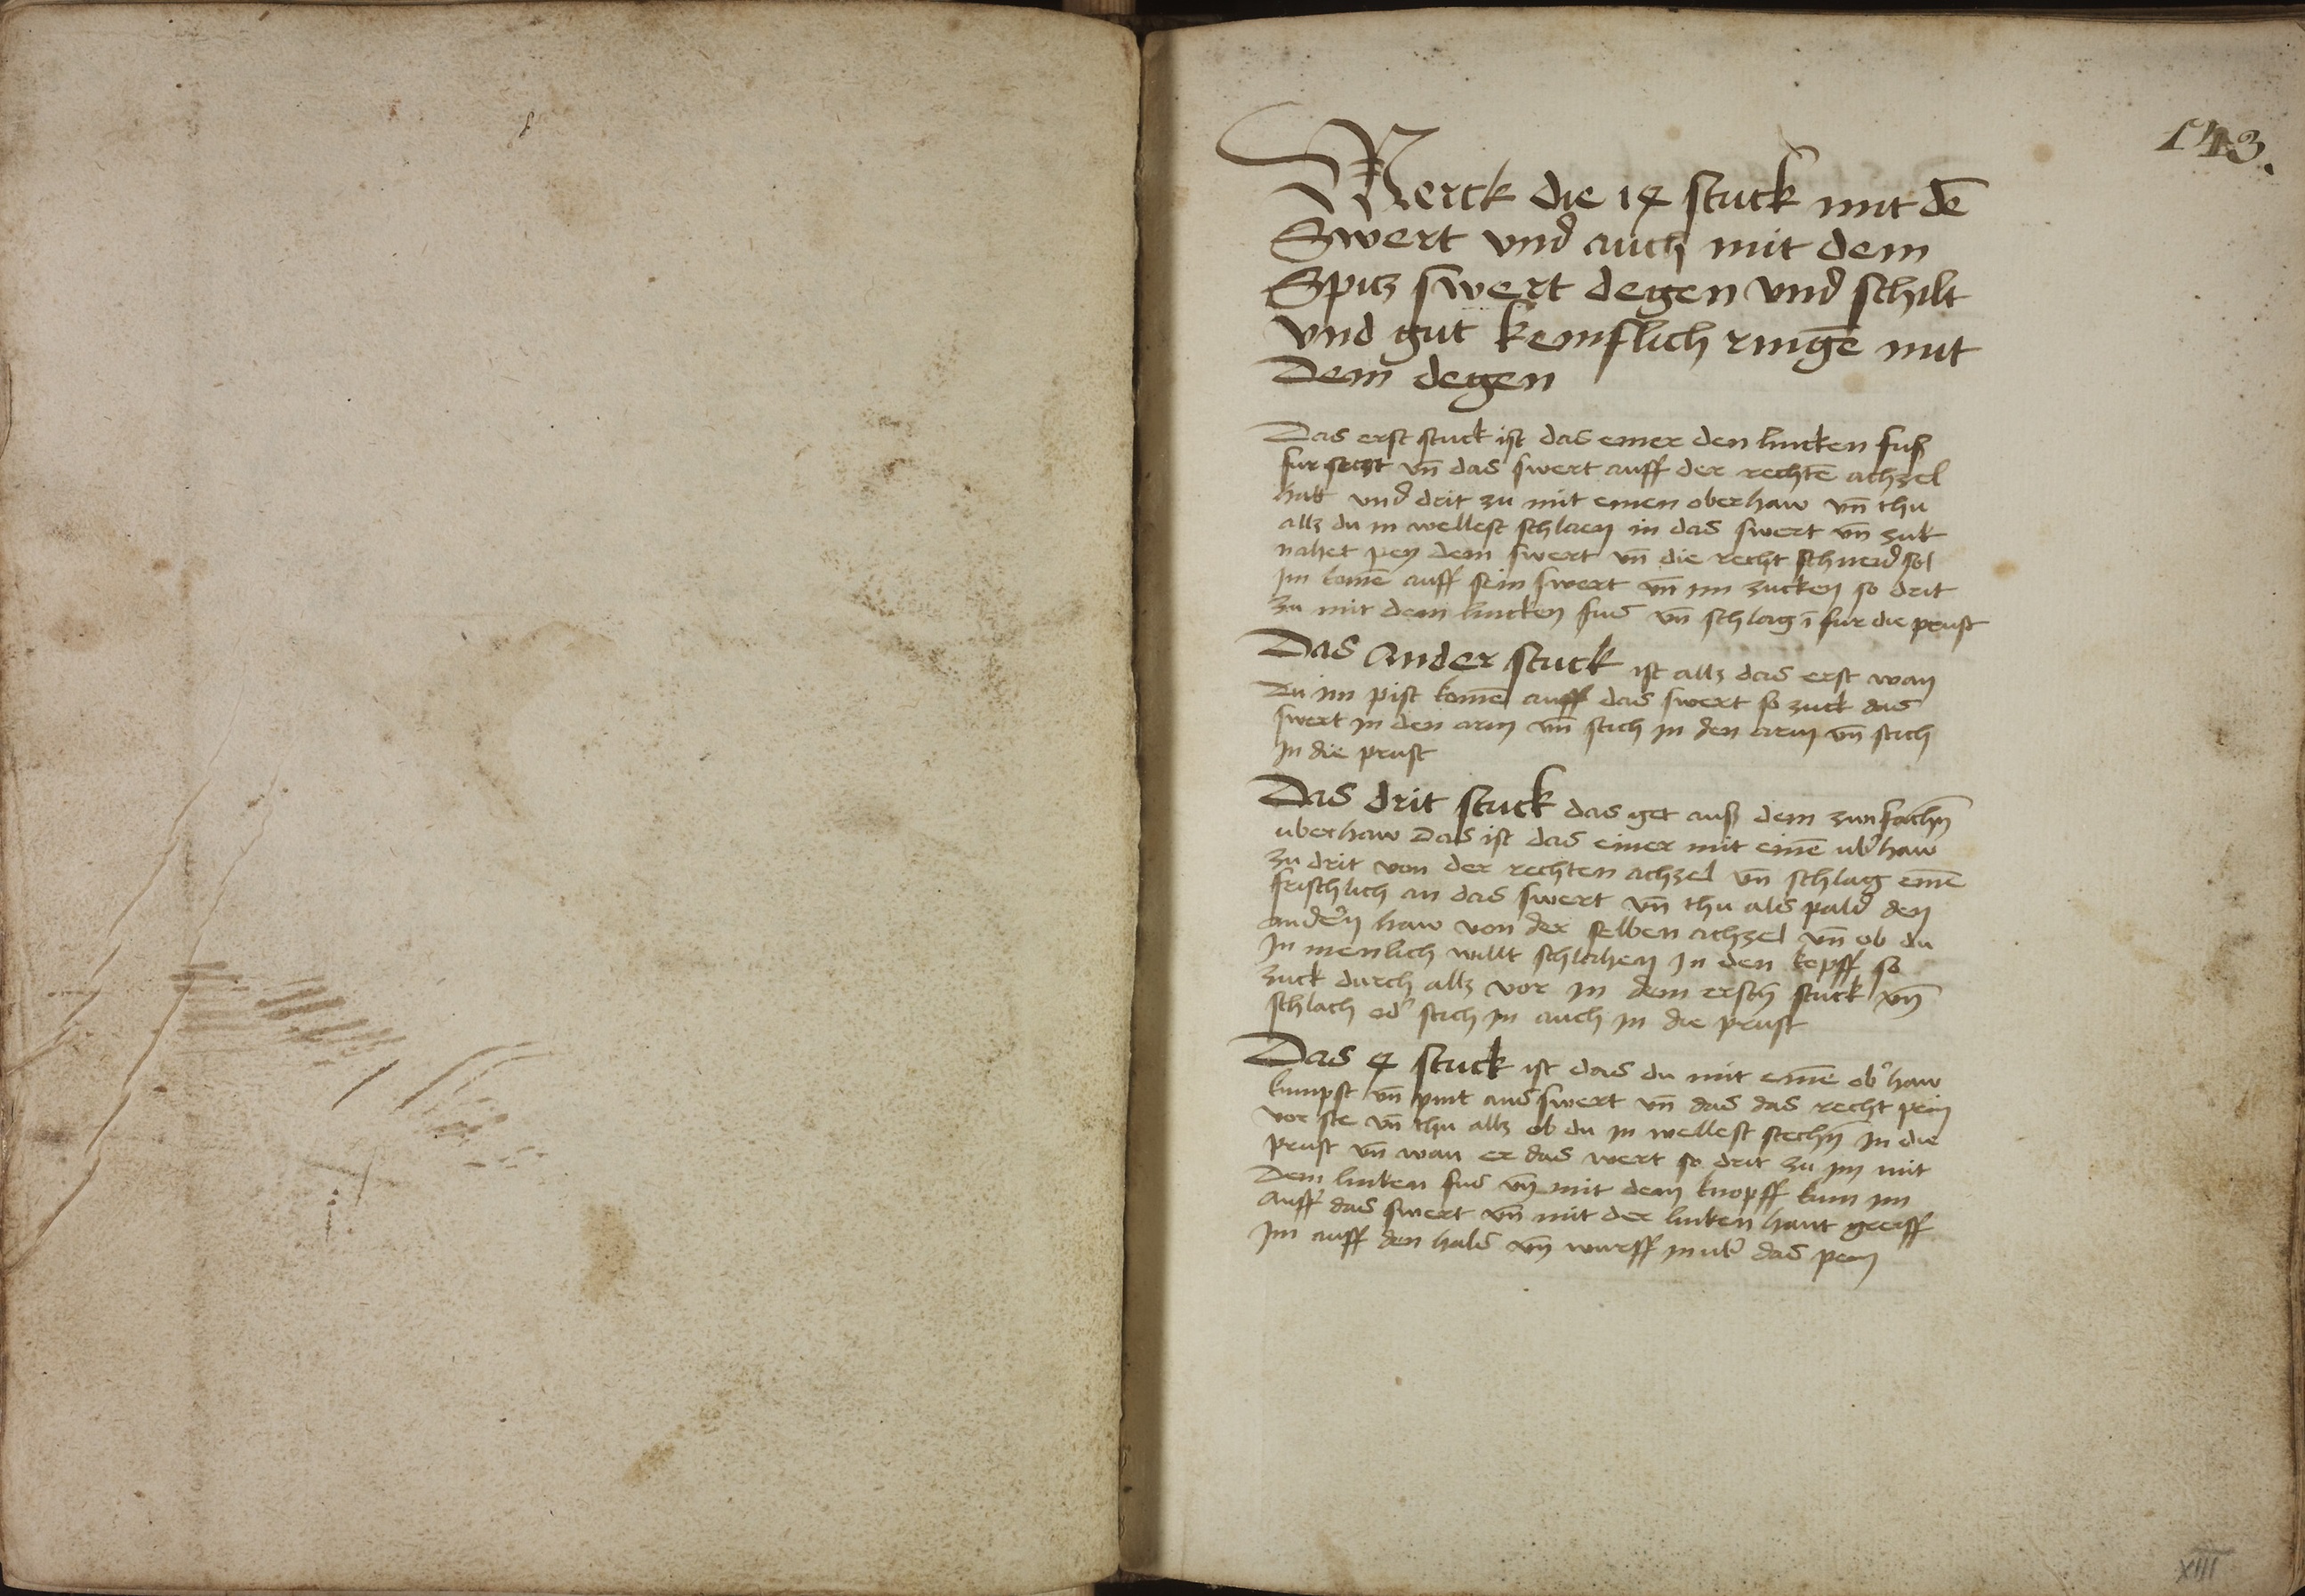 143.
Merck die 14 stuck mit dē
Swert vnd auch mit dem
Spitz swert degen vnd schilt
vnd gut kempflich ringē mit
Dem degen
Das erst stuck ist das einer den lincken fuß
fur setzt vn̄ das swert auff der rechtē achzel
hatt vnd drit zu mit einen oberhaw vn̄ thu
allz du in wellest schlaen in das swert vn̄ zuk
nahet pey dem swert vn̄ die recht schneid sol
Im komē auff sein swert vn̄ im zucken so drit
zu mit dem lincken fus vn̄ schlag ī fur die prust
Das Ander stuck ist allz das erst wan
Du im pist komē auff das swert so zuck das
swert in den arm vn̄ stich in den arm vn̄ stich
In die prust
Das drit stuck das get auß dem zwifachn̄
uberhaw Das ist das einer mit einē ub̉haw
zu drit von der rechten achzel vn̄ schlag einē
frischlich an das swert vn̄ thu als pald den
andern haw von der selben achzel vn̄ ob du
In menlich willt schlahen In den kopff so
zuck durch allz vor in dem erstn̄ stuck vn̄
schlach od̉ stich in auch in die prust
Das 4 stuck ist das du mit einē ob̉haw
kumpst vn̄ pint ans swert vn̄ das das recht pein
vor ste vn̄ thu allz ob du in wellest stechn̄ in die
prust vn̄ wan er das wert so drit zu im mit
Dem linken fus vn̄ mit dem knopff kum im
Auff das swert vn̄ mit der linken hant greiff
Im auff den hals vn̄ wurff in ub̉ das pein
XIII